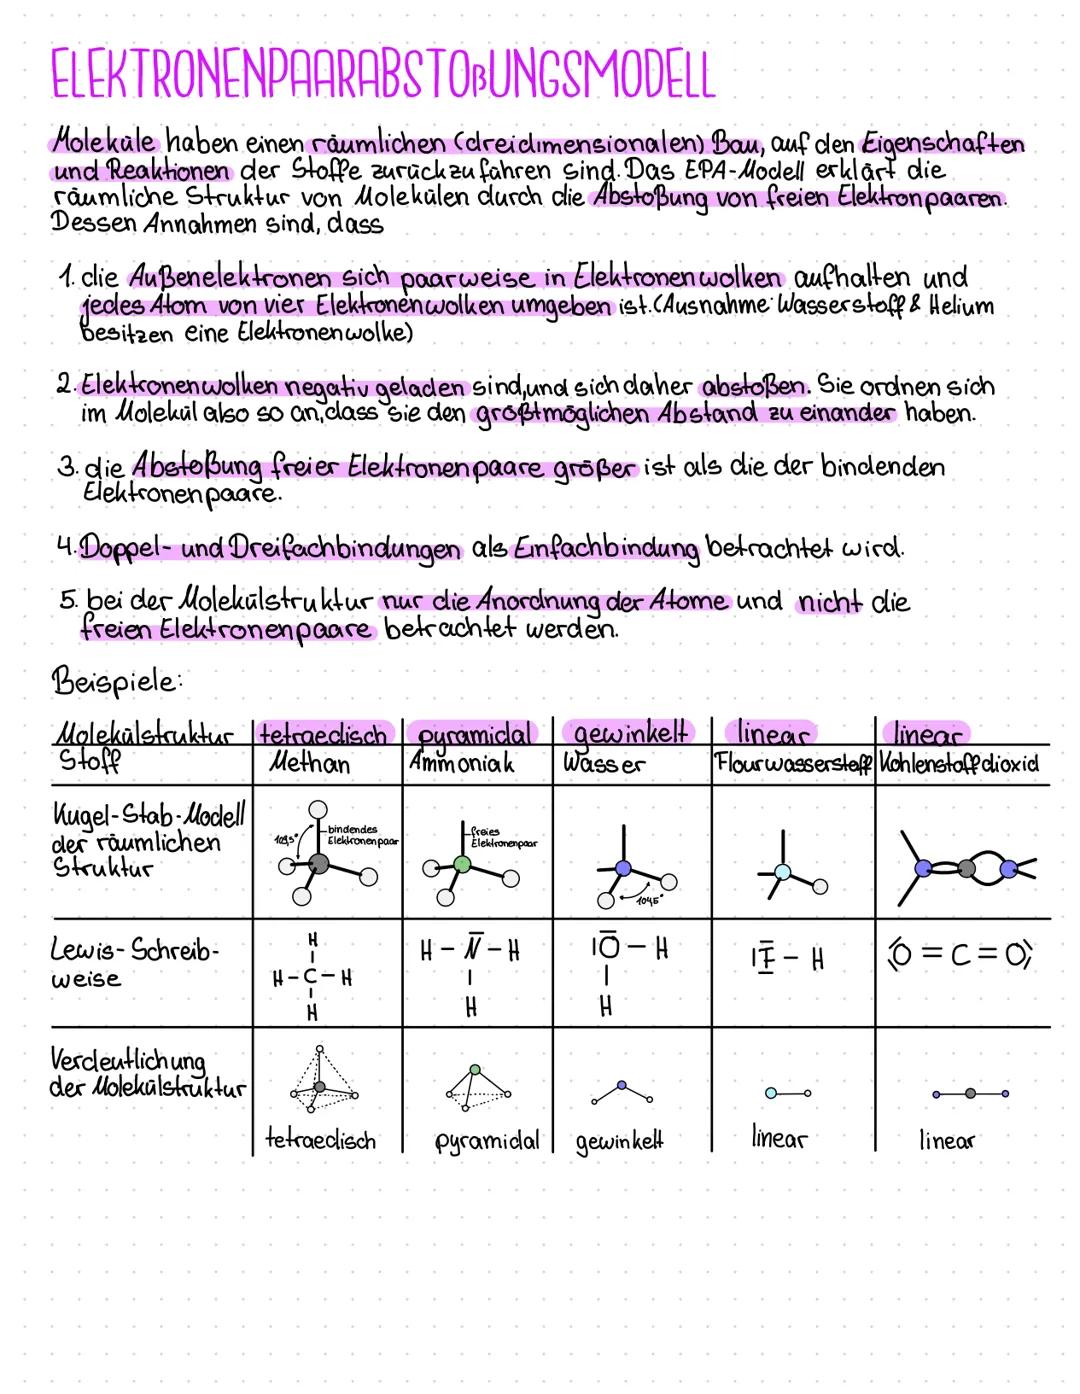 ELEKTRONENPAARABSTOßUNGSMODELL
Moleküle haben einen räumlichen (dreidimensionalen) Bau, auf den Eigenschaften
und Reaktionen der Stoffe zurückzuführen sind. Das EPA-Modell erklärt die
räumliche Struktur von Molekülen durch die Abstoßung von freien Elektronpaaren.
Dessen Annahmen sind, dass
1. die Außenelektronen sich paarweise in Elektronenwolken aufhalten und
jedes Atom von vier Elektronenwolken umgeben ist. (Ausnahme: Wasserstoff & Helium
besitzen eine Elektronenwolke)
2. Elektronenwolken negativ geladen sind, und sich daher abstoßen. Sie ordnen sich
im Molekül also so an, dass sie den größtmöglichen Abstand zu einander haben.
3. die Abstoßung freier Elektronenpaare größer ist als die der bindenden
Elektronenpaare.
4. Doppel- und Dreifachbindungen als Einfachbindung betrachtet wird.
5. bei der Molekülstruktur nur die Anordnung der Atome und nicht die
freien Elektronenpaare betrachtet werden.
Beispiele:
Molekülstruktur tetraedisch pyramidal gewinkelt linear linear
Stoff Methan Ammoniak Wasser Flourwasserstoff Kohlenstoffdioxid
Kugel-Stab-Modell
der räumlichen
Struktur
109,5°
bindendes
Elektronenpaar
freies
Elektronenpaar
104,5°
Lewis-Schreib-
weise
H
H-C-H
H
H-N-H
H
O-H
H
F-H
O=C=O
Verdeutlichung
der Molekülstruktur
tetraedisch pyramidal gewinkelt linear linear